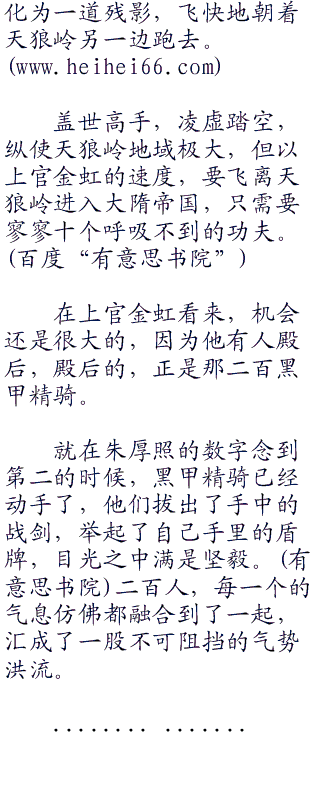 化为一道残影，飞快地朝着
天狼岭另一边跑去。
(www.heihei66.com)
盖世高手，凌虚踏空，
纵使天狼岭地域极大，但以
上官金虹的速度，要飞离天
狼岭进入大隋帝国，只需要
寥寥十个呼吸不到的功夫。
(百度“有意思书院”)
在上官金虹看来，机会
还是很大的，因为他有人殿
后，殿后的，正是那二百黑
甲精骑。
就在朱厚照的数字念到
第二的时候，黑甲精骑已经
动手了，他们拔出了手中的
战剑，举起了自己手里的盾
牌，目光之中满是坚毅。(有
意思书院)二百人，每一个的
气息仿佛都融合到了一起，
汇成了一股不可阻挡的气势
洪流。
........ .......